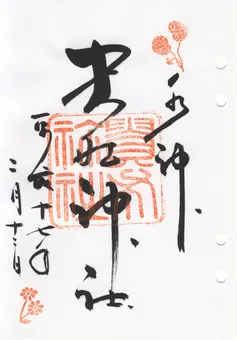 水神
貴船神社
貴船
神社
平成十七年
二月十三日